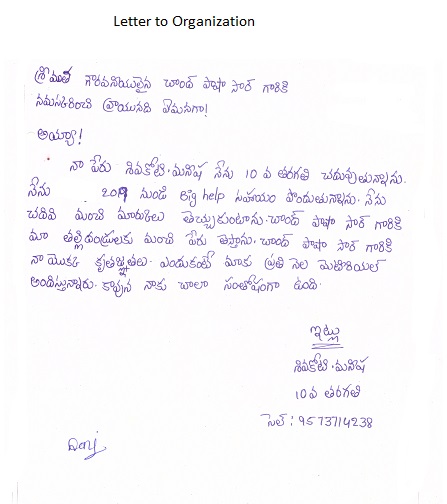 Letter to Organization
శ్రీమతి గౌరవనీయులైన చాంద్ పాషా సార్ గారికి
నమస్కరించి వ్రాయునది ఏమనగా!
అయ్యా!
నా పేరు శివకోటి.మనిష నేను 10 వ తరగతి చదువుతున్నాను.
నేను 2019 నుండి Big help సహాయం పొందుతున్నాను. నేను
చదివి మంచి మార్కులు తెచ్చుకుంటాను. చాంద్ పాషా సార్ గారికి
మా తల్లిదండ్రులకు మంచి పేరు తెస్తాను. చాంద్ పాషా సార్ గారికి
నా యొక్క కృతజ్ఞతలు. ఎందుకంటే మాకు ప్రతి నెల మెటీరియల్
అందిస్తున్నారు. కావున నాకు చాలా సంతోషంగా ఉంది.
ఇట్లు
శివకోటి.మనిష
10 వ తరగతి
సెల్ : 9573714238